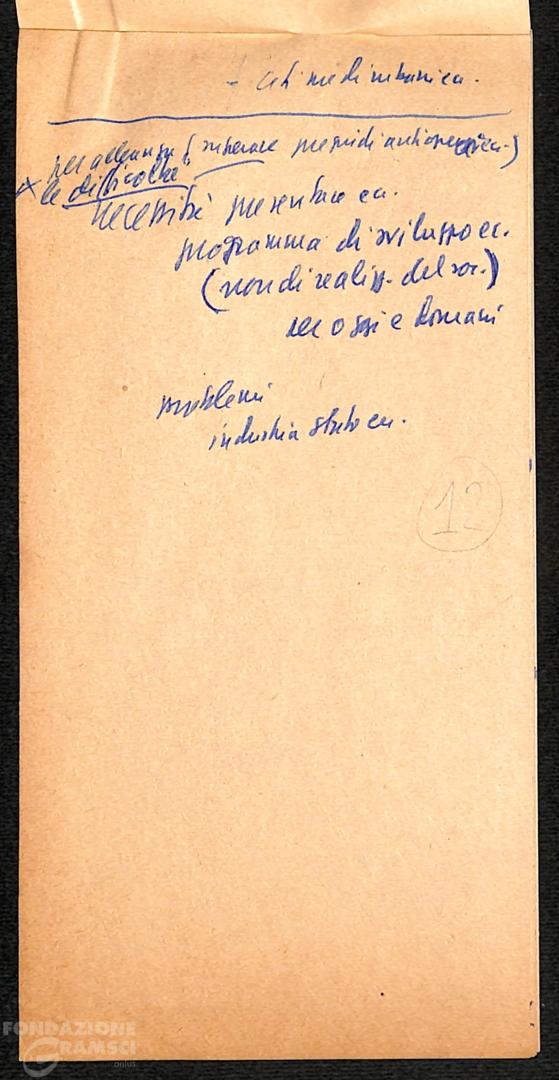 - ceti medi urbani ec.
per alleanza (superare pregiudizi antioperai ec.)
le difficoltà
necessità presentare ec.
programma di sviluppo ec.
(non di realizz. del soc.)
per oggi e domani
problemi
industria stato ec.
12
FONDAZIONE
GRAMSCI
onlus